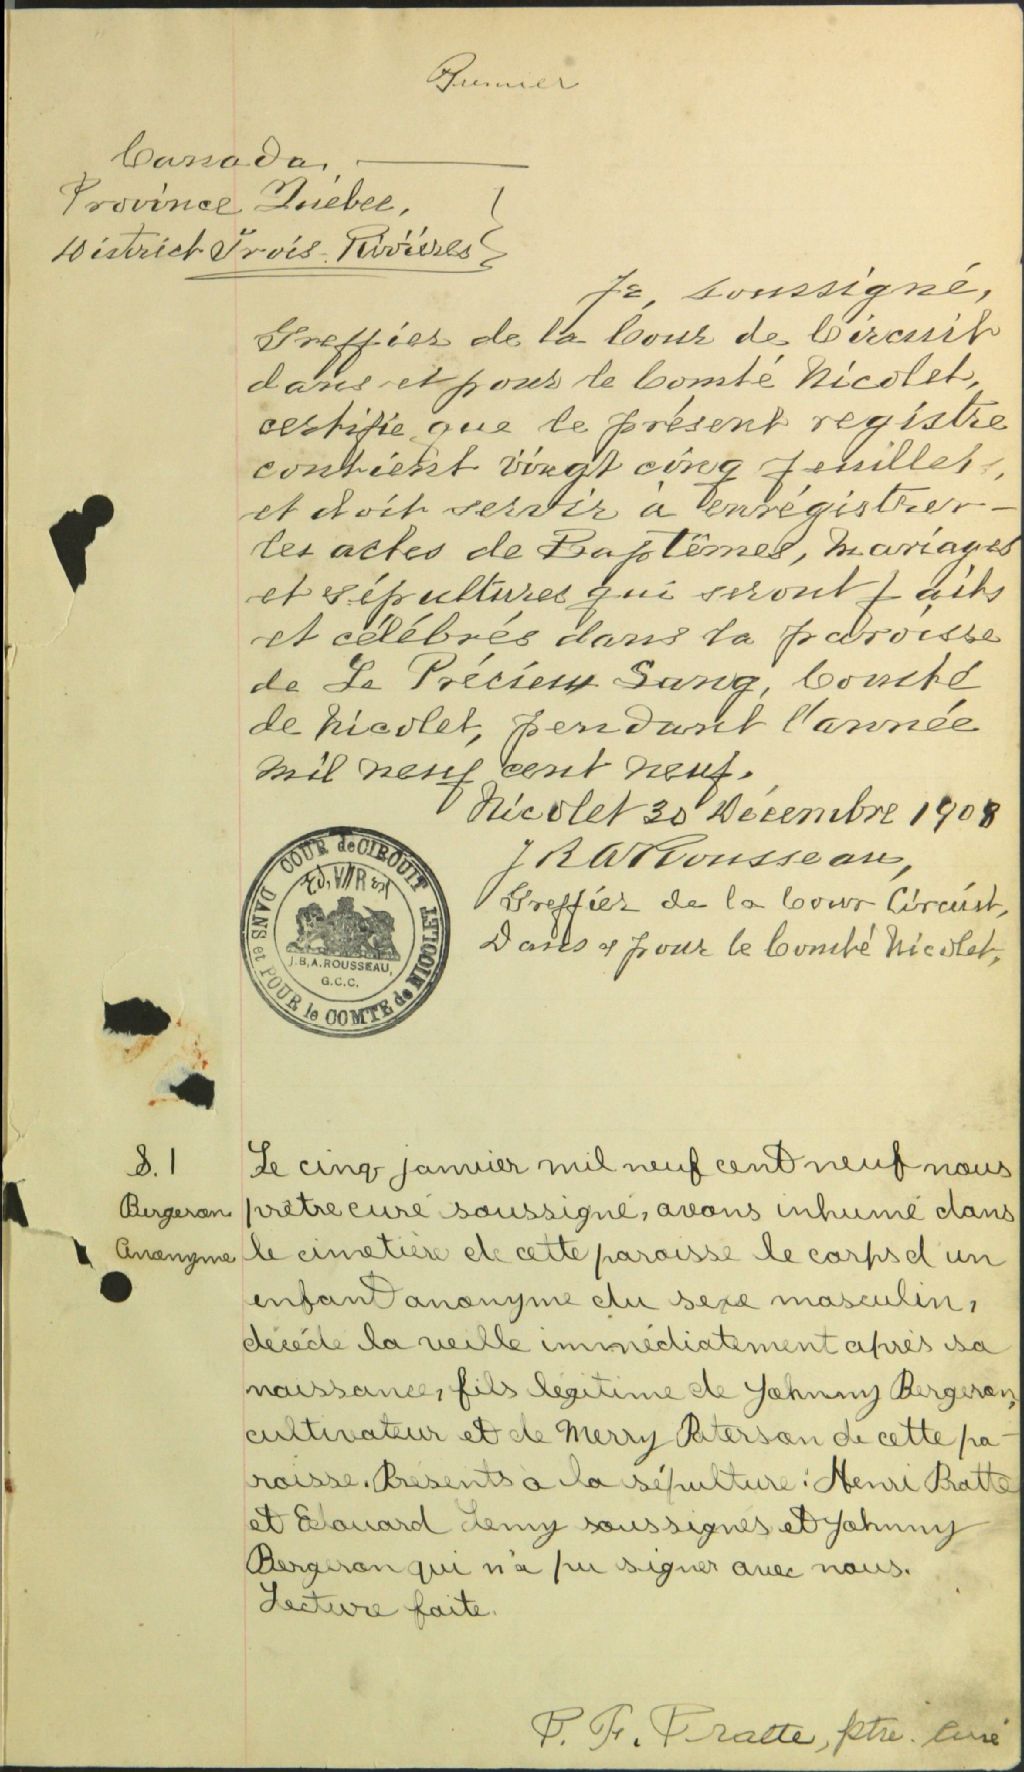 Premier
Canada,
Province Québec,
District Trois-Rivières
Je, soussigné,
Greffier de la Cour de Circuit
dans et pour le Comté Nicolet,
certifie que le présent registre
contient vingt cinq feuillets,
et doit servir à enrégistrer -
les actes de Baptêmes, Mariages
et sépultures qui seront faits
et célébrés dans la paroisse
de Le Précieux Sang, Comté
de Nicolet, pendant l'année
mil neuf cent neuf.
Nicolet 30 Décembre 1908
J B A Rousseau,
Greffier de la Cour Circuit,
Dans & pour le Comté Nicolet,
COUR de CIRCUIT
DANS et POUR le COMTE de NICOLET
J.B.A. ROUSSEAU,
G.C.C.
S. 1
Bergeron
Anonyme
Le cinq janvier mil neuf cent neuf nous
prêtre curé soussigné, avons inhumé dans
le cimetière de cette paroisse le corps d'un
enfant anonyme du sexe masculin,
décédé la veille immédiatement après sa
naissance, fils légitime de Johnny Bergeron,
cultivateur et de Merry Paterson de cette pa-
roisse. Présents à la sépulture: Henri Pratte
et Edouard Lemy soussignés et Johnny
Bergeron qui n'a pu signer avec nous.
Lecture faite.
P. F. Pratte, ptre. curé